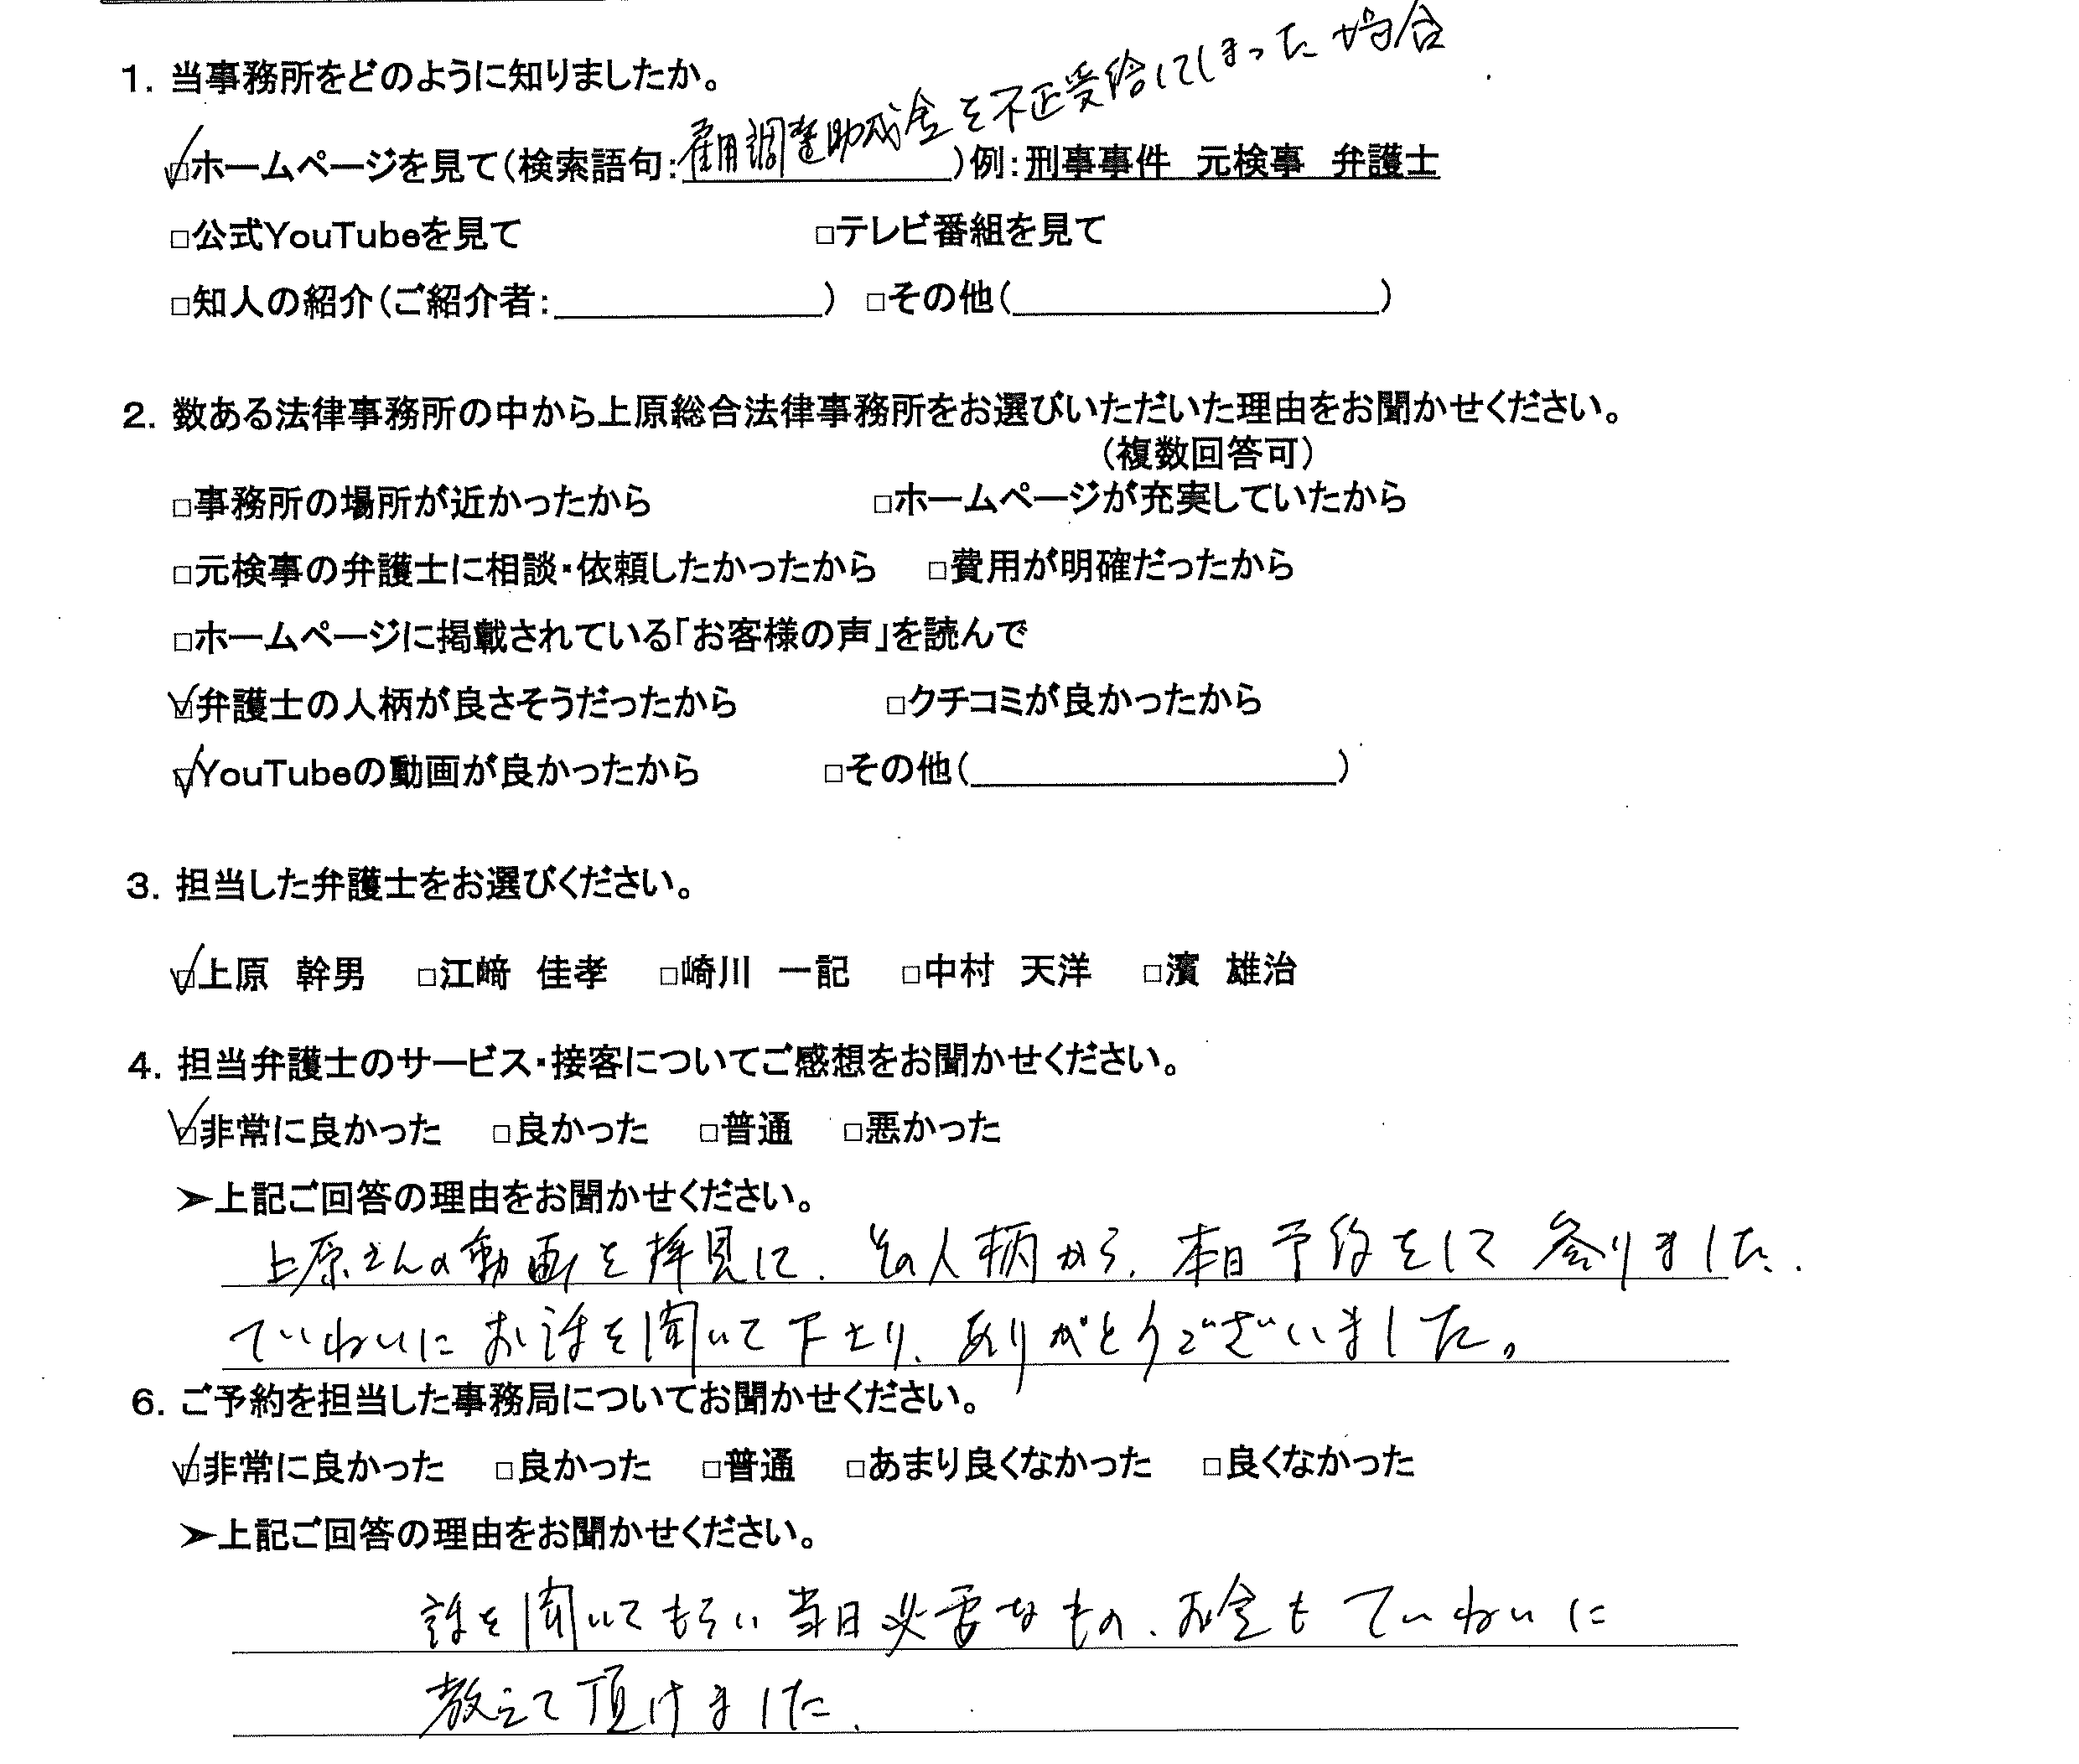 1. 当事務所をどのように知りましたか。
☑ホームページを見て(検索語句:雇用調整助成金を不正受給してしまった場合)例:刑事事件 元検事 弁護士
□公式YouTubeを見て □テレビ番組を見て
□知人の紹介(ご紹介者: ) □その他( )
2. 数ある法律事務所の中から上原総合法律事務所をお選びいただいた理由をお聞かせください。
(複数回答可)
□事務所の場所が近かったから □ホームページが充実していたから
□元検事の弁護士に相談・依頼したかったから □費用が明確だったから
□ホームページに掲載されている「お客様の声」を読んで
☑弁護士の人柄が良さそうだったから □クチコミが良かったから
☑YouTubeの動画が良かったから □その他( )
3. 担当した弁護士をお選びください。
☑上原 幹男 □江﨑 佳孝 □崎川 一記 □中村 天洋 □濱 雄治
4. 担当弁護士のサービス・接客についてご感想をお聞かせください。
☑非常に良かった □良かった □普通 □悪かった
➤上記ご回答の理由をお聞かせください。
上原さんの動画を拝見して、その人柄から、本日予約をして参りました.
ていねいにお話を聞いて下さり、ありがとうございました。
6. ご予約を担当した事務局についてお聞かせください。
☑非常に良かった □良かった □普通 □あまり良くなかった □良くなかった
➤上記ご回答の理由をお聞かせください。
話を聞いてもらい当日必要なもの、お金もていねいに
教えて頂けました.